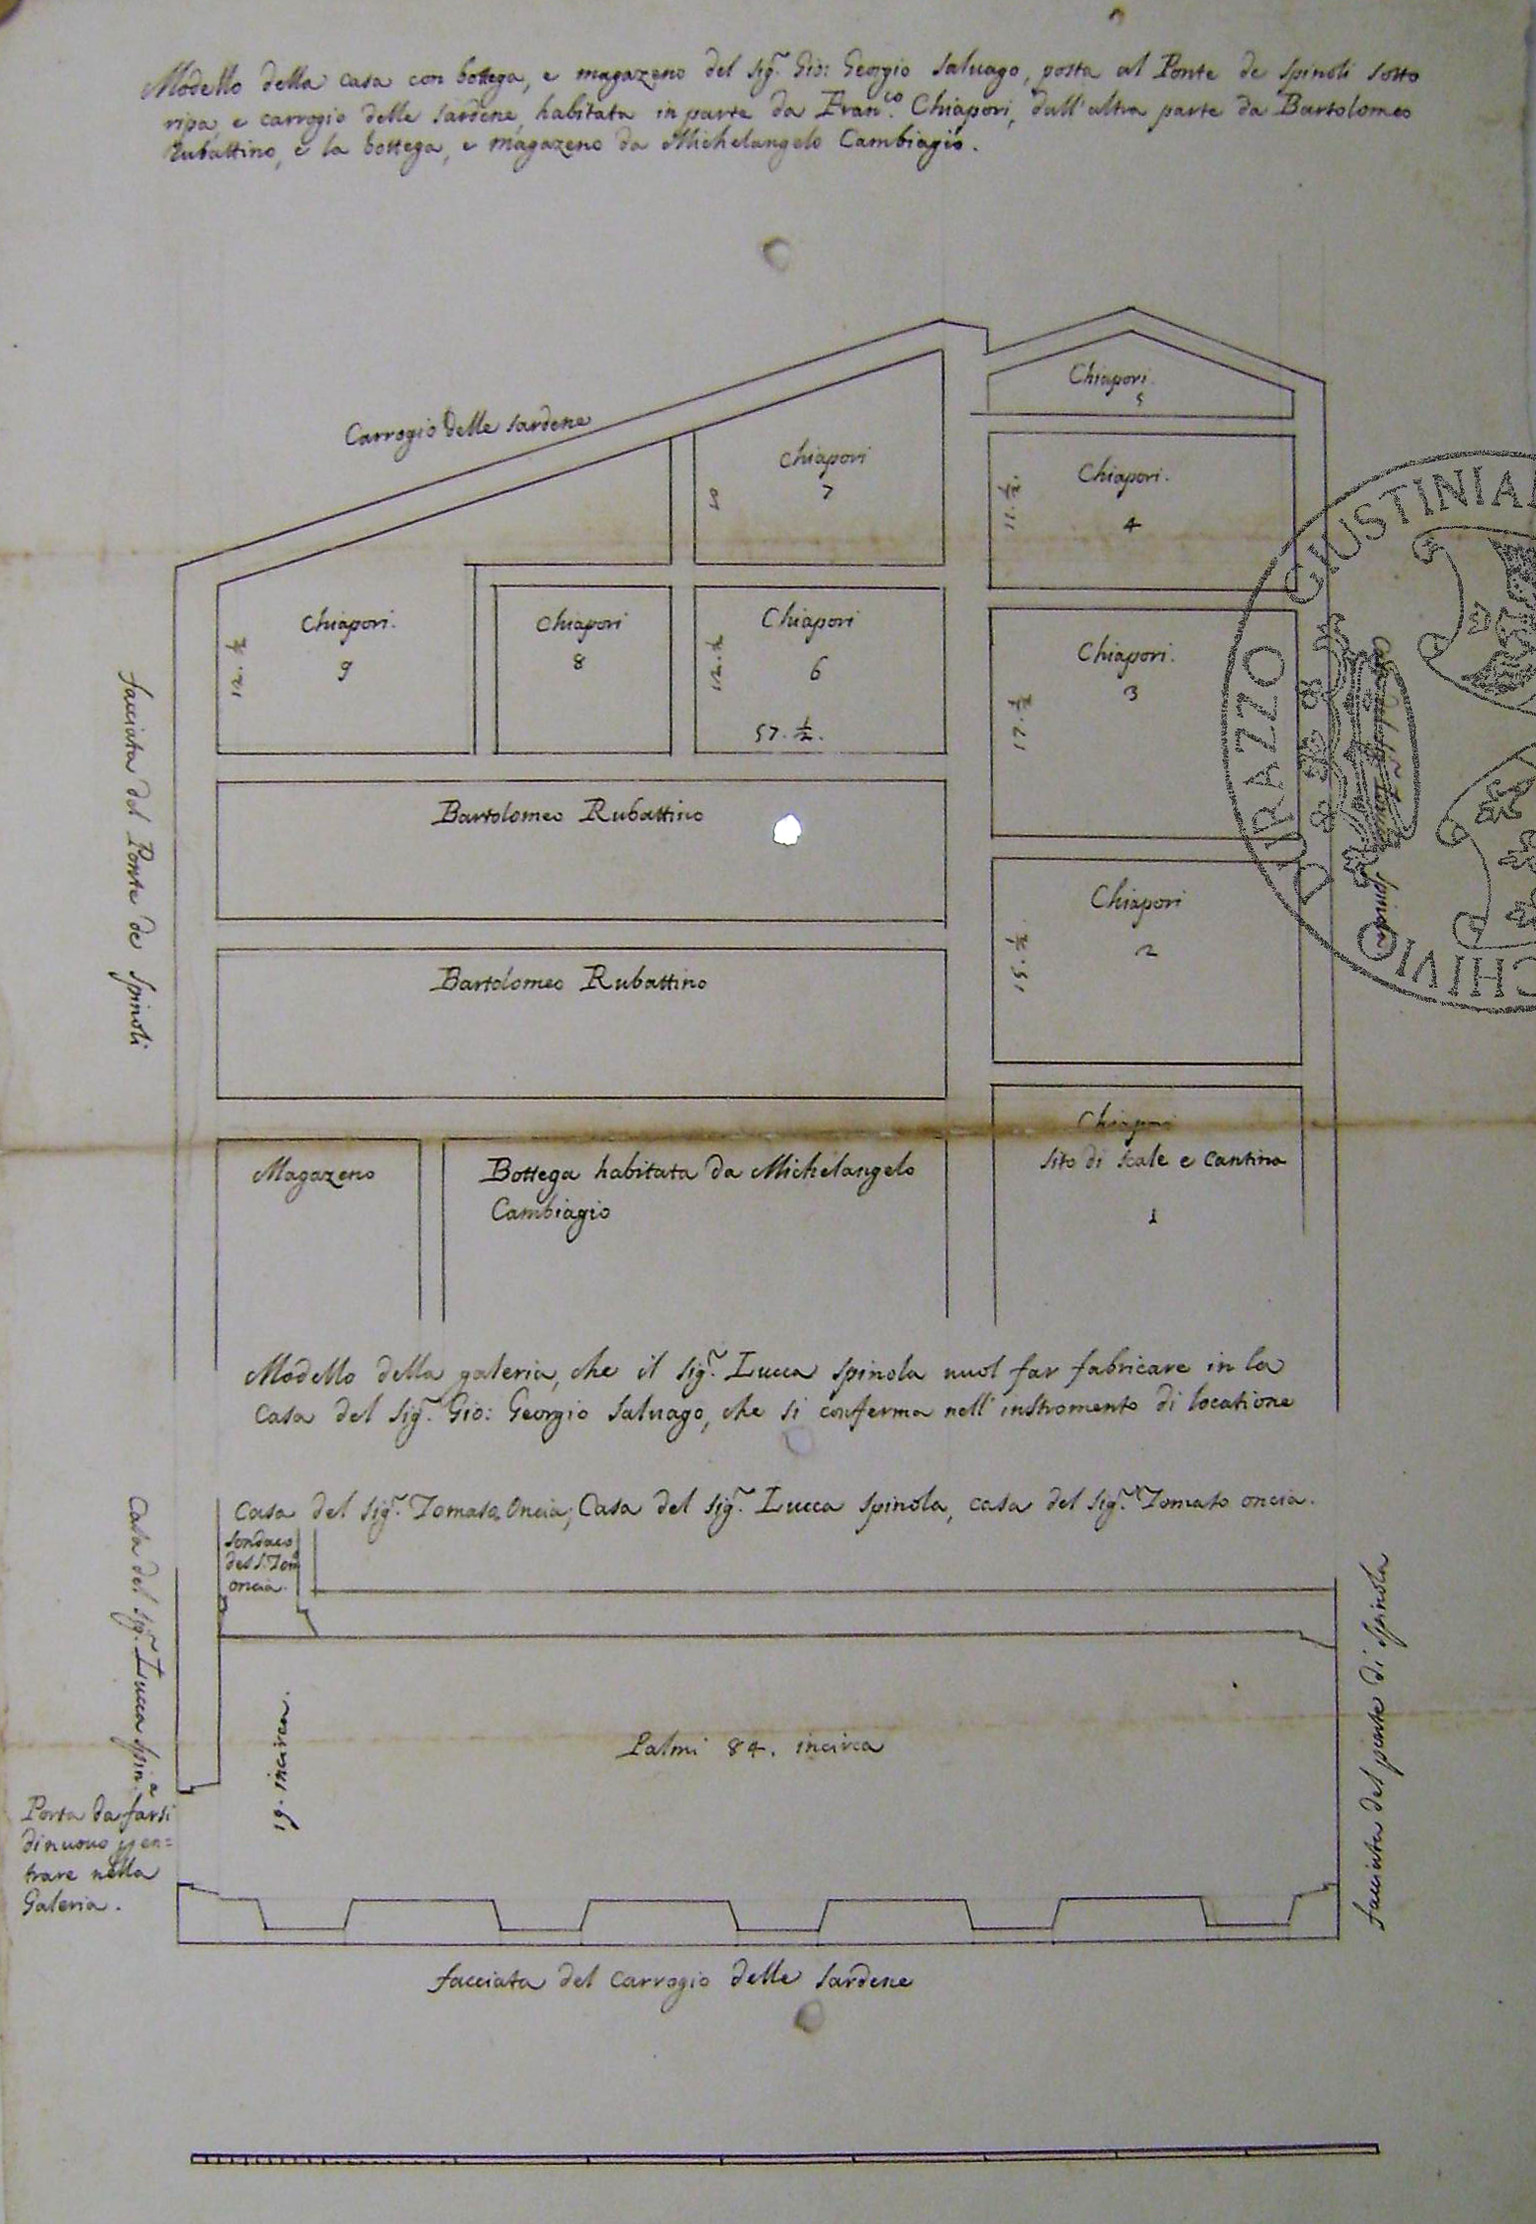 Modello della casa con bottega, e magazeno del Sig.r Gio: Georgio Saluago, posta al Ponte de Spinoli sotto
ripa e carrogio delle Sardene, habitata in parte da Fran.co Chiapori, dall'altra parte da Bartolomeo
Rubattino, e la bottega, e magazeno da Michelangelo Cambiagio.
Carrogio delle Sardene
Chiapori.
5
Chiapori
7
Chiapori.
4
11.½.
Chiapori.
9
12.½
Chiapori
8
Chiapori
6
12.½
57.½.
Chiapori.
3
17.½
facciata del Ponte de Spinoli
GIUSTINIAN
DURAZZO
CHIVIO
Spinola
Bartolomeo Rubattino
Chiapori
2
15.½
Bartolomeo Rubattino
Magazeno
Bottega habitata da Michelangelo
Cambiagio
Chiapori
sito di scale e cantina
1
Modello della galeria, che il Sig.r Lucca Spinola uuol far fabricare in la
Casa del Sig.r Gio: Georgio Saluago, che si conferma nell'instromento di locatione
Casa del Sig.r Tomaso Oncia; Casa del Sig.r Lucca Spinola, casa del Sig.r Tomaso oncia.
fondaco
del S. Tom
oncia.
Casa del Sig.r Lucca Spin.a
19. incirca.
Palmi 84. incirca
facciata del ponte di Spinola
Porta da farsi
di nuouo p en=
trare nella
Galeria.
facciata del carrogio delle Sardene